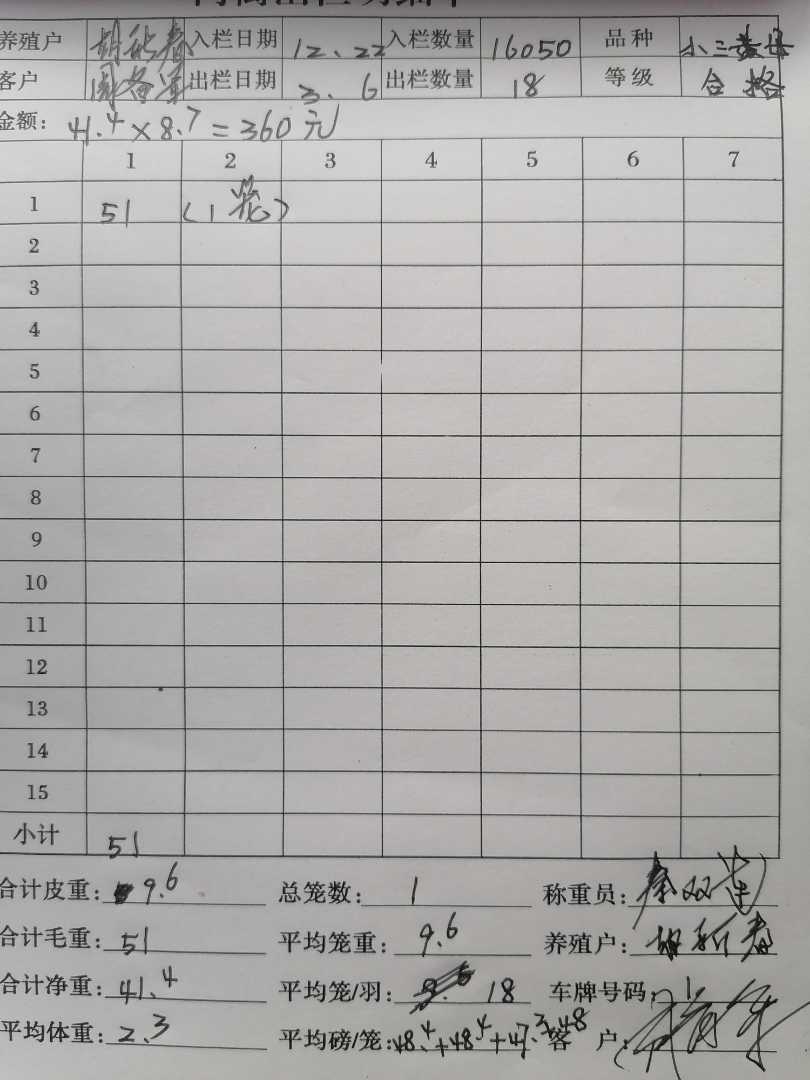 养殖户 胡新春 入栏日期 12、22 入栏数量 16050 品种 小三黄母
客户 出栏日期 3.6 出栏数量 18 等级 合格
金额: 41.4×8.7=360元
1 2 3 4 5 6 7
1 51 (1笼)
2
3
4
5
6
7
8
9
10
11
12
13
14
15
小计 51
合计皮重: 9.6 总笼数: 1 称重员: 秦双
合计毛重: 51 平均笼重: 9.6 养殖户: 胡新春
合计净重: 41.4 平均笼/羽: 18 车牌号码:
平均体重: 2.3 平均磅/笼: 48.4+48.4+47.3 48 客 户: